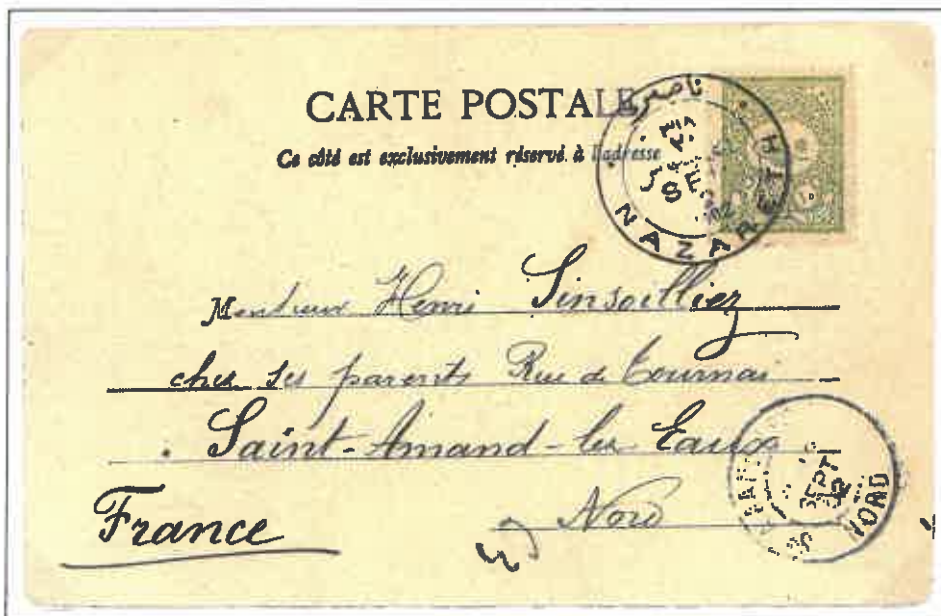 CARTE POSTALE
Ce côté est exclusivement réservé à l'adresse
ناصره
NAZARETH
SE
Monsieur Henri Sinsoilliez
chez ses parents Rue de Tournai
Saint-Amand-les Eaux
Nord
France
SEPT
NORD